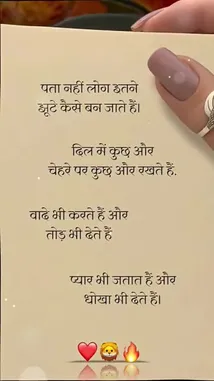 पता नहीं लोग इतने
झूटे कैसे बन जाते हैं।
दिल में कुछ और
चेहरे पर कुछ और रखते हैं.
वादे भी करते हैं और
तोड़ भी देते हैं
प्यार भी जताते हैं और
धोखा भी देते हैं।